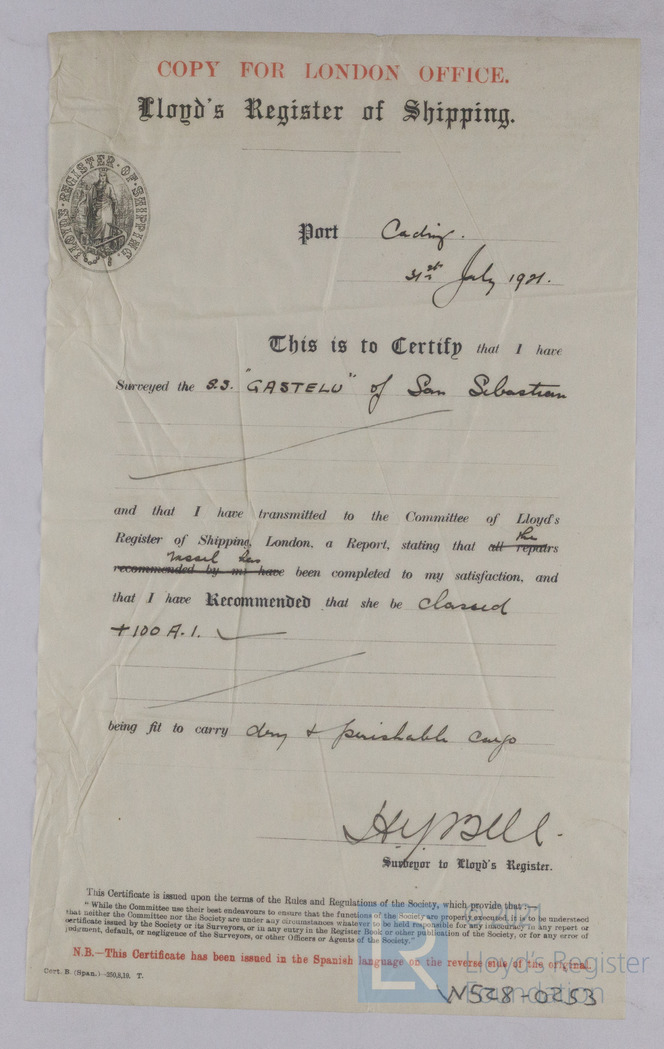 COPY FOR LONDON OFFICE.
Lloyd's Register of Shipping.
LLOYD'S·REGISTER·OF·SHIPPING.
Port Cadiz.
31st July 1921.
This is to Certify that I have
Surveyed the S.S. "GASTELU" of San Sebastian
and that I have transmitted to the Committee of Lloyd's
Register of Shipping, London, a Report, stating that all repairs the
recommended by me have vessel has been completed to my satisfaction, and
that I have Recommended that she be classed
+100 A.1.
being fit to carry dry & perishable cargo
H.J. Bell.
Surveyor to Lloyd's Register.
This Certificate is issued upon the terms of the Rules and Regulations of the Society, which provide that:—
"While the Committee use their best endeavours to ensure that the functions of the Society are properly executed, it is to be understood
that neither the Committee nor the Society are under any circumstances whatever to be held responsible for any inaccuracy in any report or
certificate issued by the Society or its Surveyors, or in any entry in the Register Book or other publication of the Society, or for any error of
judgment, default, or negligence of the Surveyors, or other Officers or Agents of the Society."
N.B.—This Certificate has been issued in the Spanish language on the reverse side of the original.
Cert. B. (Span.)—350,8,19. T.
LR
Lloyd's Register
Foundation
W528-0253